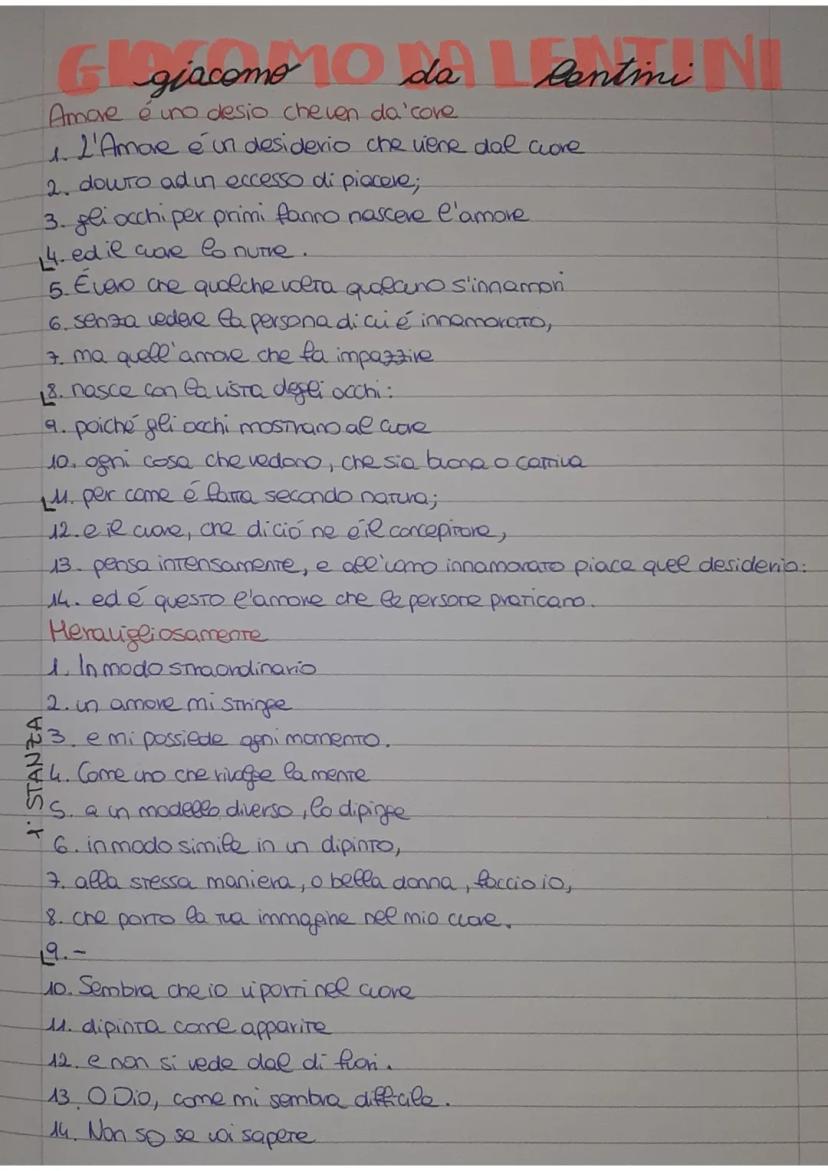 GIACOMO DA LENTINI
giacomo da lentini
Amore é uno desio che ven da'core
1. L'Amore é un desiderio che viene dal cuore
2. dovuto ad un eccesso di piacere;
3. gli occhi per primi fanno nascere l'amore
4. ed il cuore lo nutre.
5. É vero che qualche volta qualcuno s'innamori
6. senza vedere la persona di cui é innamorato,
7. ma quell'amore che fa impazzire
8. nasce con la vista degli occhi:
9. poiché gli occhi mostrano al cuore
10. ogni cosa che vedono, che sia buona o cattiva
11. per come é fatta secondo natura;
12. e il cuore, che di ció ne é il concepitore,
13. pensa intensamente, e all'uomo innamorato piace quel desiderio:
14. ed é questo l'amore che le persone praticano.
Meravigliosamente
1. In modo straordinario
2. un amore mi stringe
3. e mi possiede ogni momento.
4. Come uno che rivolge la mente
5. a un modello diverso, lo dipinge
6. in modo simile in un dipinto,
7. alla stessa maniera, o bella donna, faccio io,
8. che porto la tua immagine nel mio cuore.
9. -
1° STANZA
10. Sembra che io vi porti nel cuore
11. dipinta come apparite
12. e non si vede dal di fuori.
13. O Dio, come mi sembra difficile.
14. Non so se voi sapete